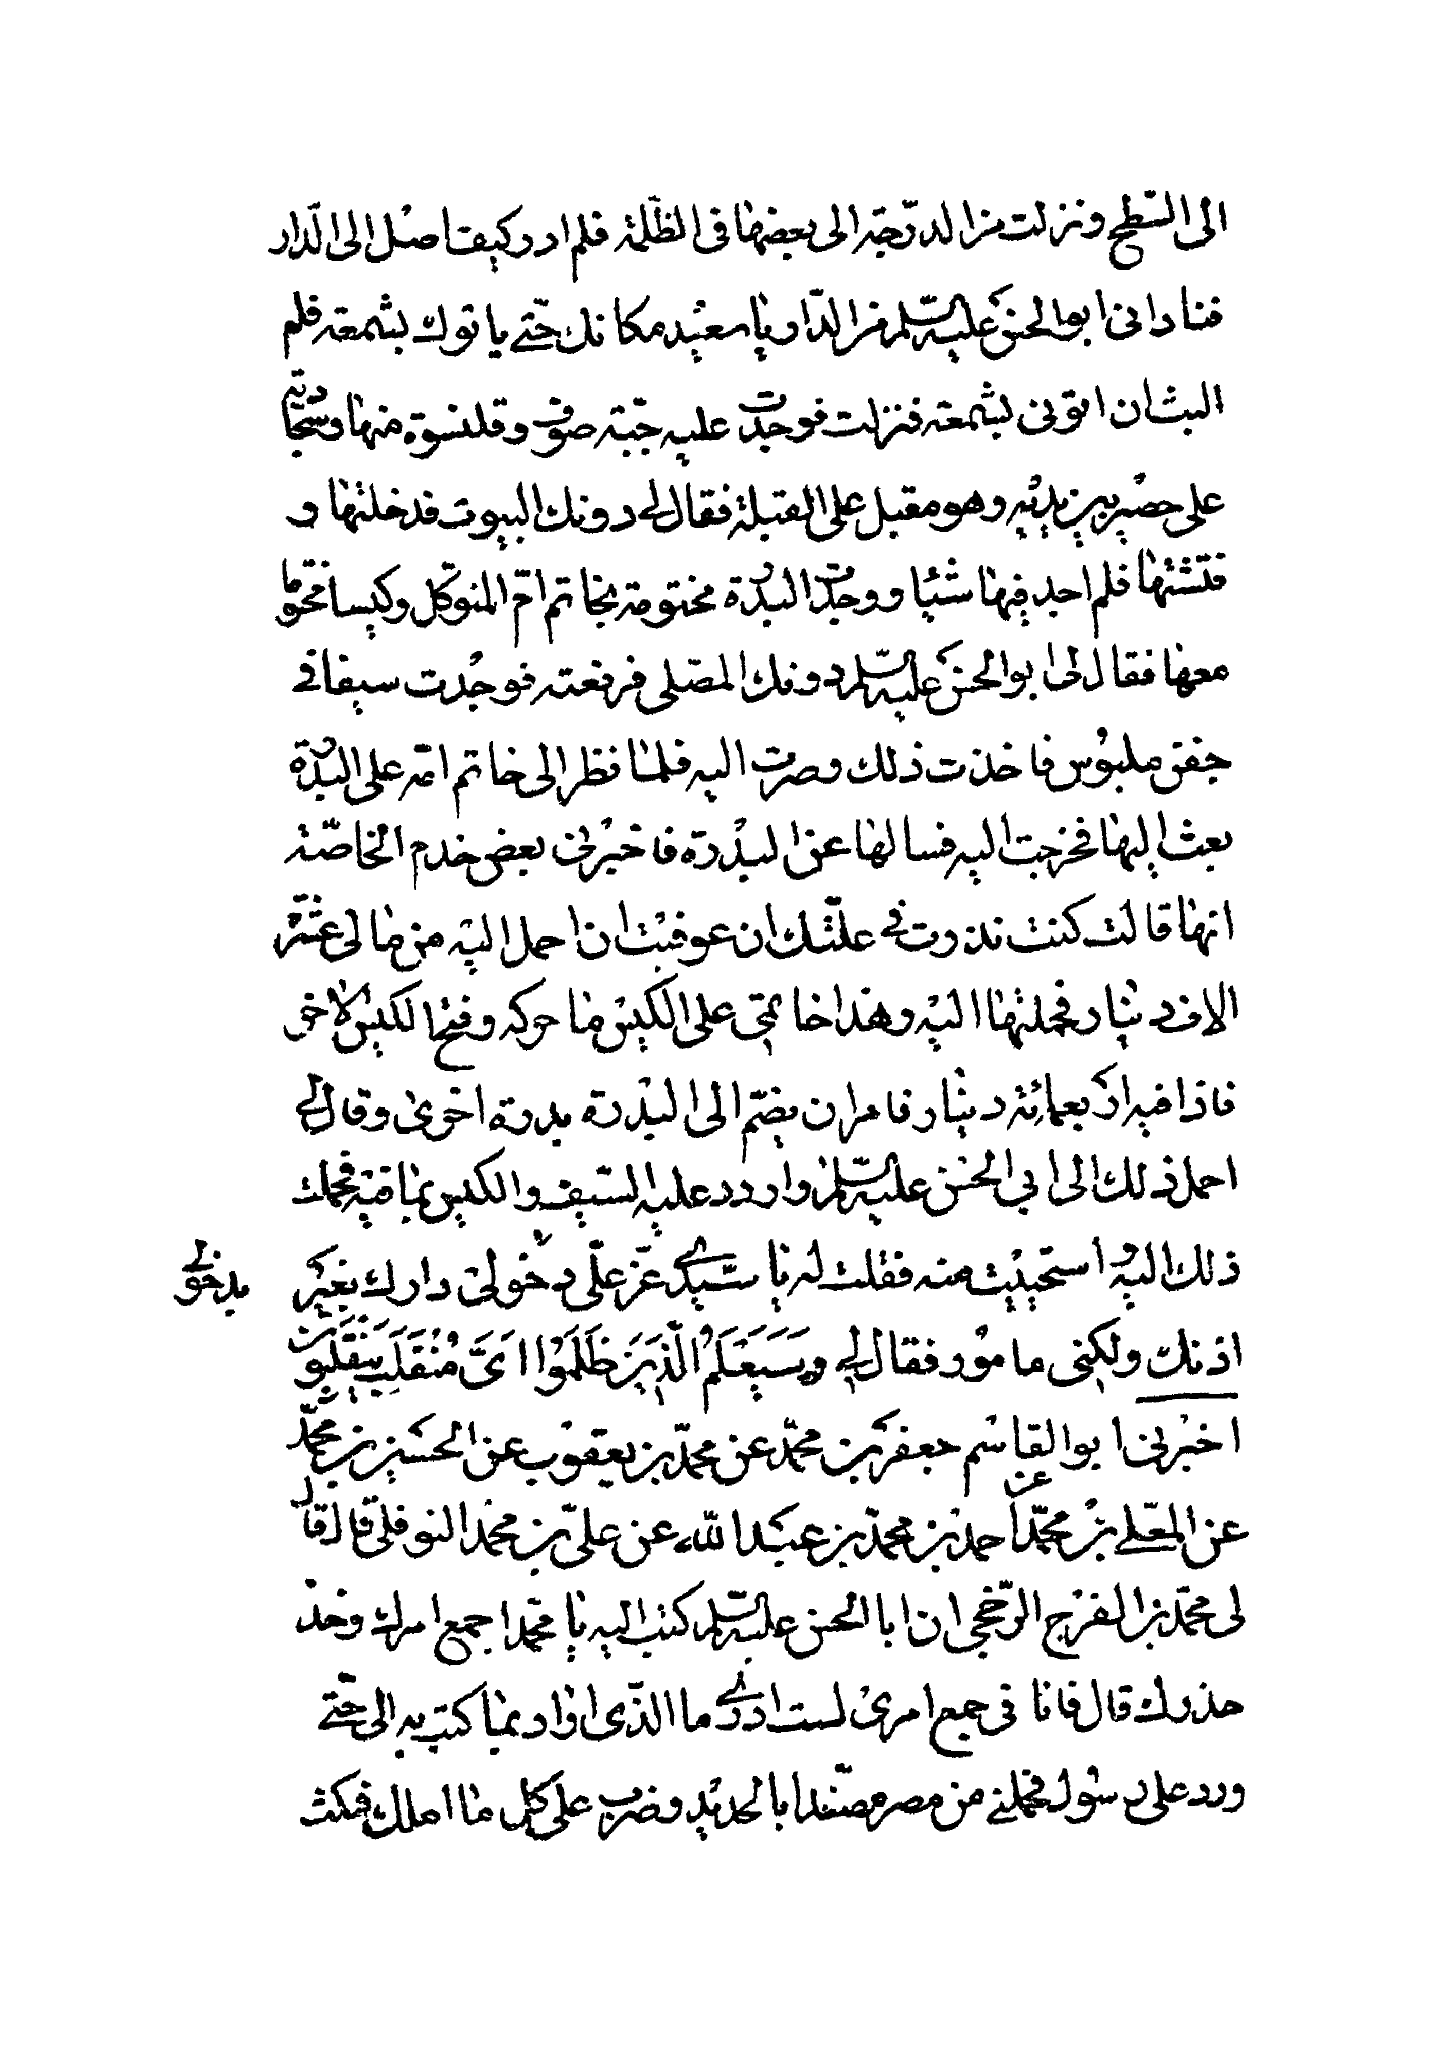 الى السّطح ونزلت من الدّرجة الى بعضها فى الظّلمة فلم ادر كيف اصل الى الدّار
فنادانى ابو الحسن عليه السّلم من الدّار يا سعيد مكانك حتّى ياتوك بشمعة فلم
البث ان اتونى بشمعة فنزلت فوجدت عليه جبّة صوف وقلنسوة منها وسجّادته
على حصير بين يديه وهو مقبل على القبلة فقال لى دونك البيوت فدخلتها و
فتشتها فلم اجد فيها شيئا ووجدت البدرة مختومة بخاتم امّ المتوكّل وكيسا مختوما
معها فقال لى ابو الحسن عليه السّلم دونك المصلّى فرفعته فوجدت سيفا فى
جفن ملبوس فاخذت ذلك وصرت اليه فلمّا نظر الى خاتم امّه على البدرة
بعث اليها فخرجت اليه فسالها عن البدرة فاخبرنى بعض خدم الخاصّة
انها قالت كنت نذرت فى علّتك ان عوفيت ان احمل اليه من مالى عشرة
الاف دينار فحملتها اليه وهذا خاتمى على الكيس ما حركه وفتح الكيس الاخر
فاذا فيه اربعمائة دينار فامر ان يضمّ الى البدرة بدرة اخرى وقال لى
احمل ذلك الى ابى الحسن عليه السّلم واردد عليه السّيف والكيس بما فيه فحملت
ذلك اليه و استحييت منه فقلت له يا سيّدى عزّ علىّ دخولى دارك بغير
بدخولى
اذنك ولكنى مامور فقال لى وَسَيَعْلَمُ الَّذِينَ ظَلَمُوا اَىَّ مُنْقَلَبٍ يَنْقَلِبُونَ
اخبرنى ابو القاسم جعفر بن محمّد عن محمّد بن يعقوب عن الحسين بن محمّد
عن المعلّى بن محمّد عن احمد بن محمّد بن عبد الله عن علىّ بن محمد النوفلى قال قال
لى محمّد بن الفرج الرّخجى ان ابا الحسن عليه السّلم كتب اليه يا محمّد اجمع امرك وخذ
حذرك قال فانا فى جمع امرى لست ادرى ما الّذى اراد بما كتب به الى حتّى
ورد على رسول فحملنى من مصر مصفّدا بالحديد وضرب على كل ما املك فمكثت